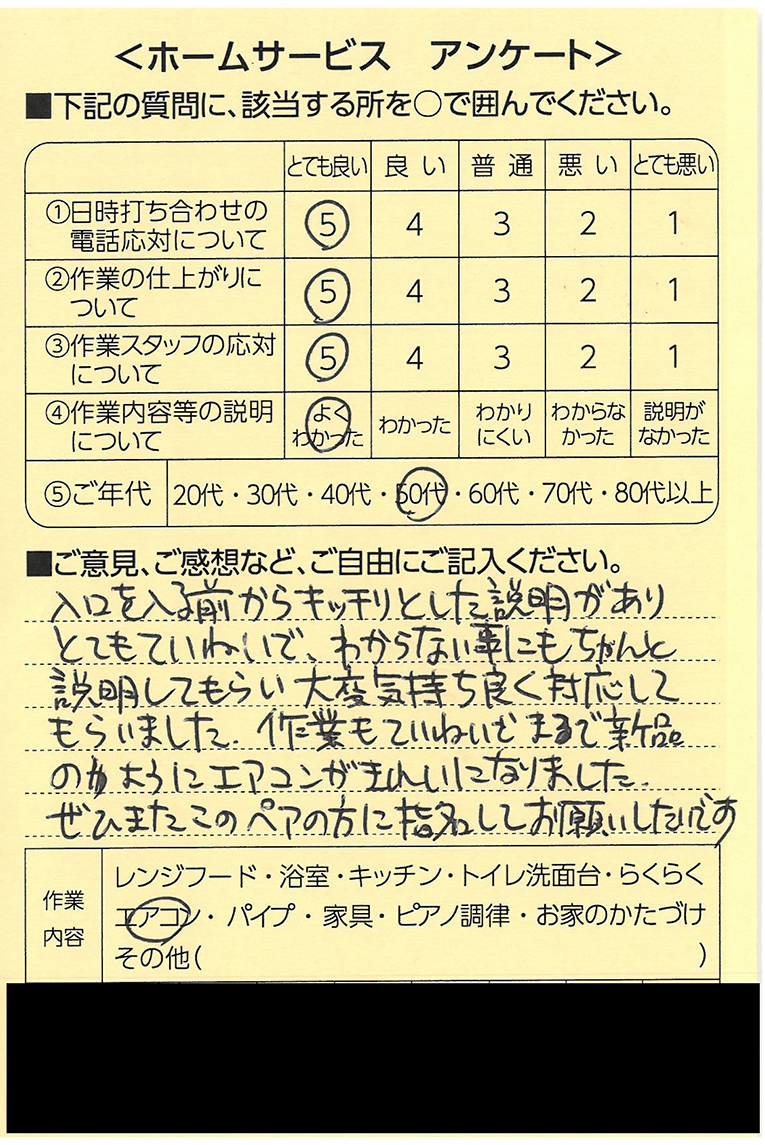 ＜ホームサービス　アンケート＞
■下記の質問に、該当する所を○で囲んでください。
とても良い 良い 普通 悪い とても悪い
①日時打ち合わせの
電話応対について 5 4 3 2 1
②作業の仕上がりに
ついて 5 4 3 2 1
③作業スタッフの応対
について 5 4 3 2 1
④作業内容等の説明
について よく
わかった わかった わかり
にくい わからな
かった 説明が
なかった
⑤ご年代 20代・30代・40代・50代・60代・70代・80代以上
■ご意見、ご感想など、ご自由にご記入ください。
入口を入る前からキッチリとした説明があり
とてもていねいで、わからない事にもちゃんと
説明してもらい大変気持ち良く対応して
もらいました。作業もていねいでまるで新品
のようにエアコンがきれいになりました。
ぜひまたこのペアの方に指名してお願いしたいです
作業
内容
レンジフード・浴室・キッチン・トイレ洗面台・らくらく
エアコン・パイプ・家具・ピアノ調律・お家のかたづけ
その他(　　　)